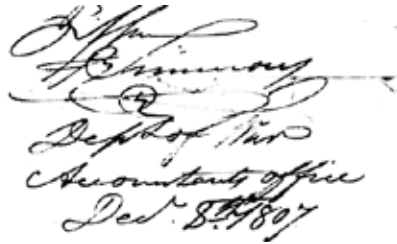 Wm Simmons
Dept of War
Accountants office
Decr. 8th 1807